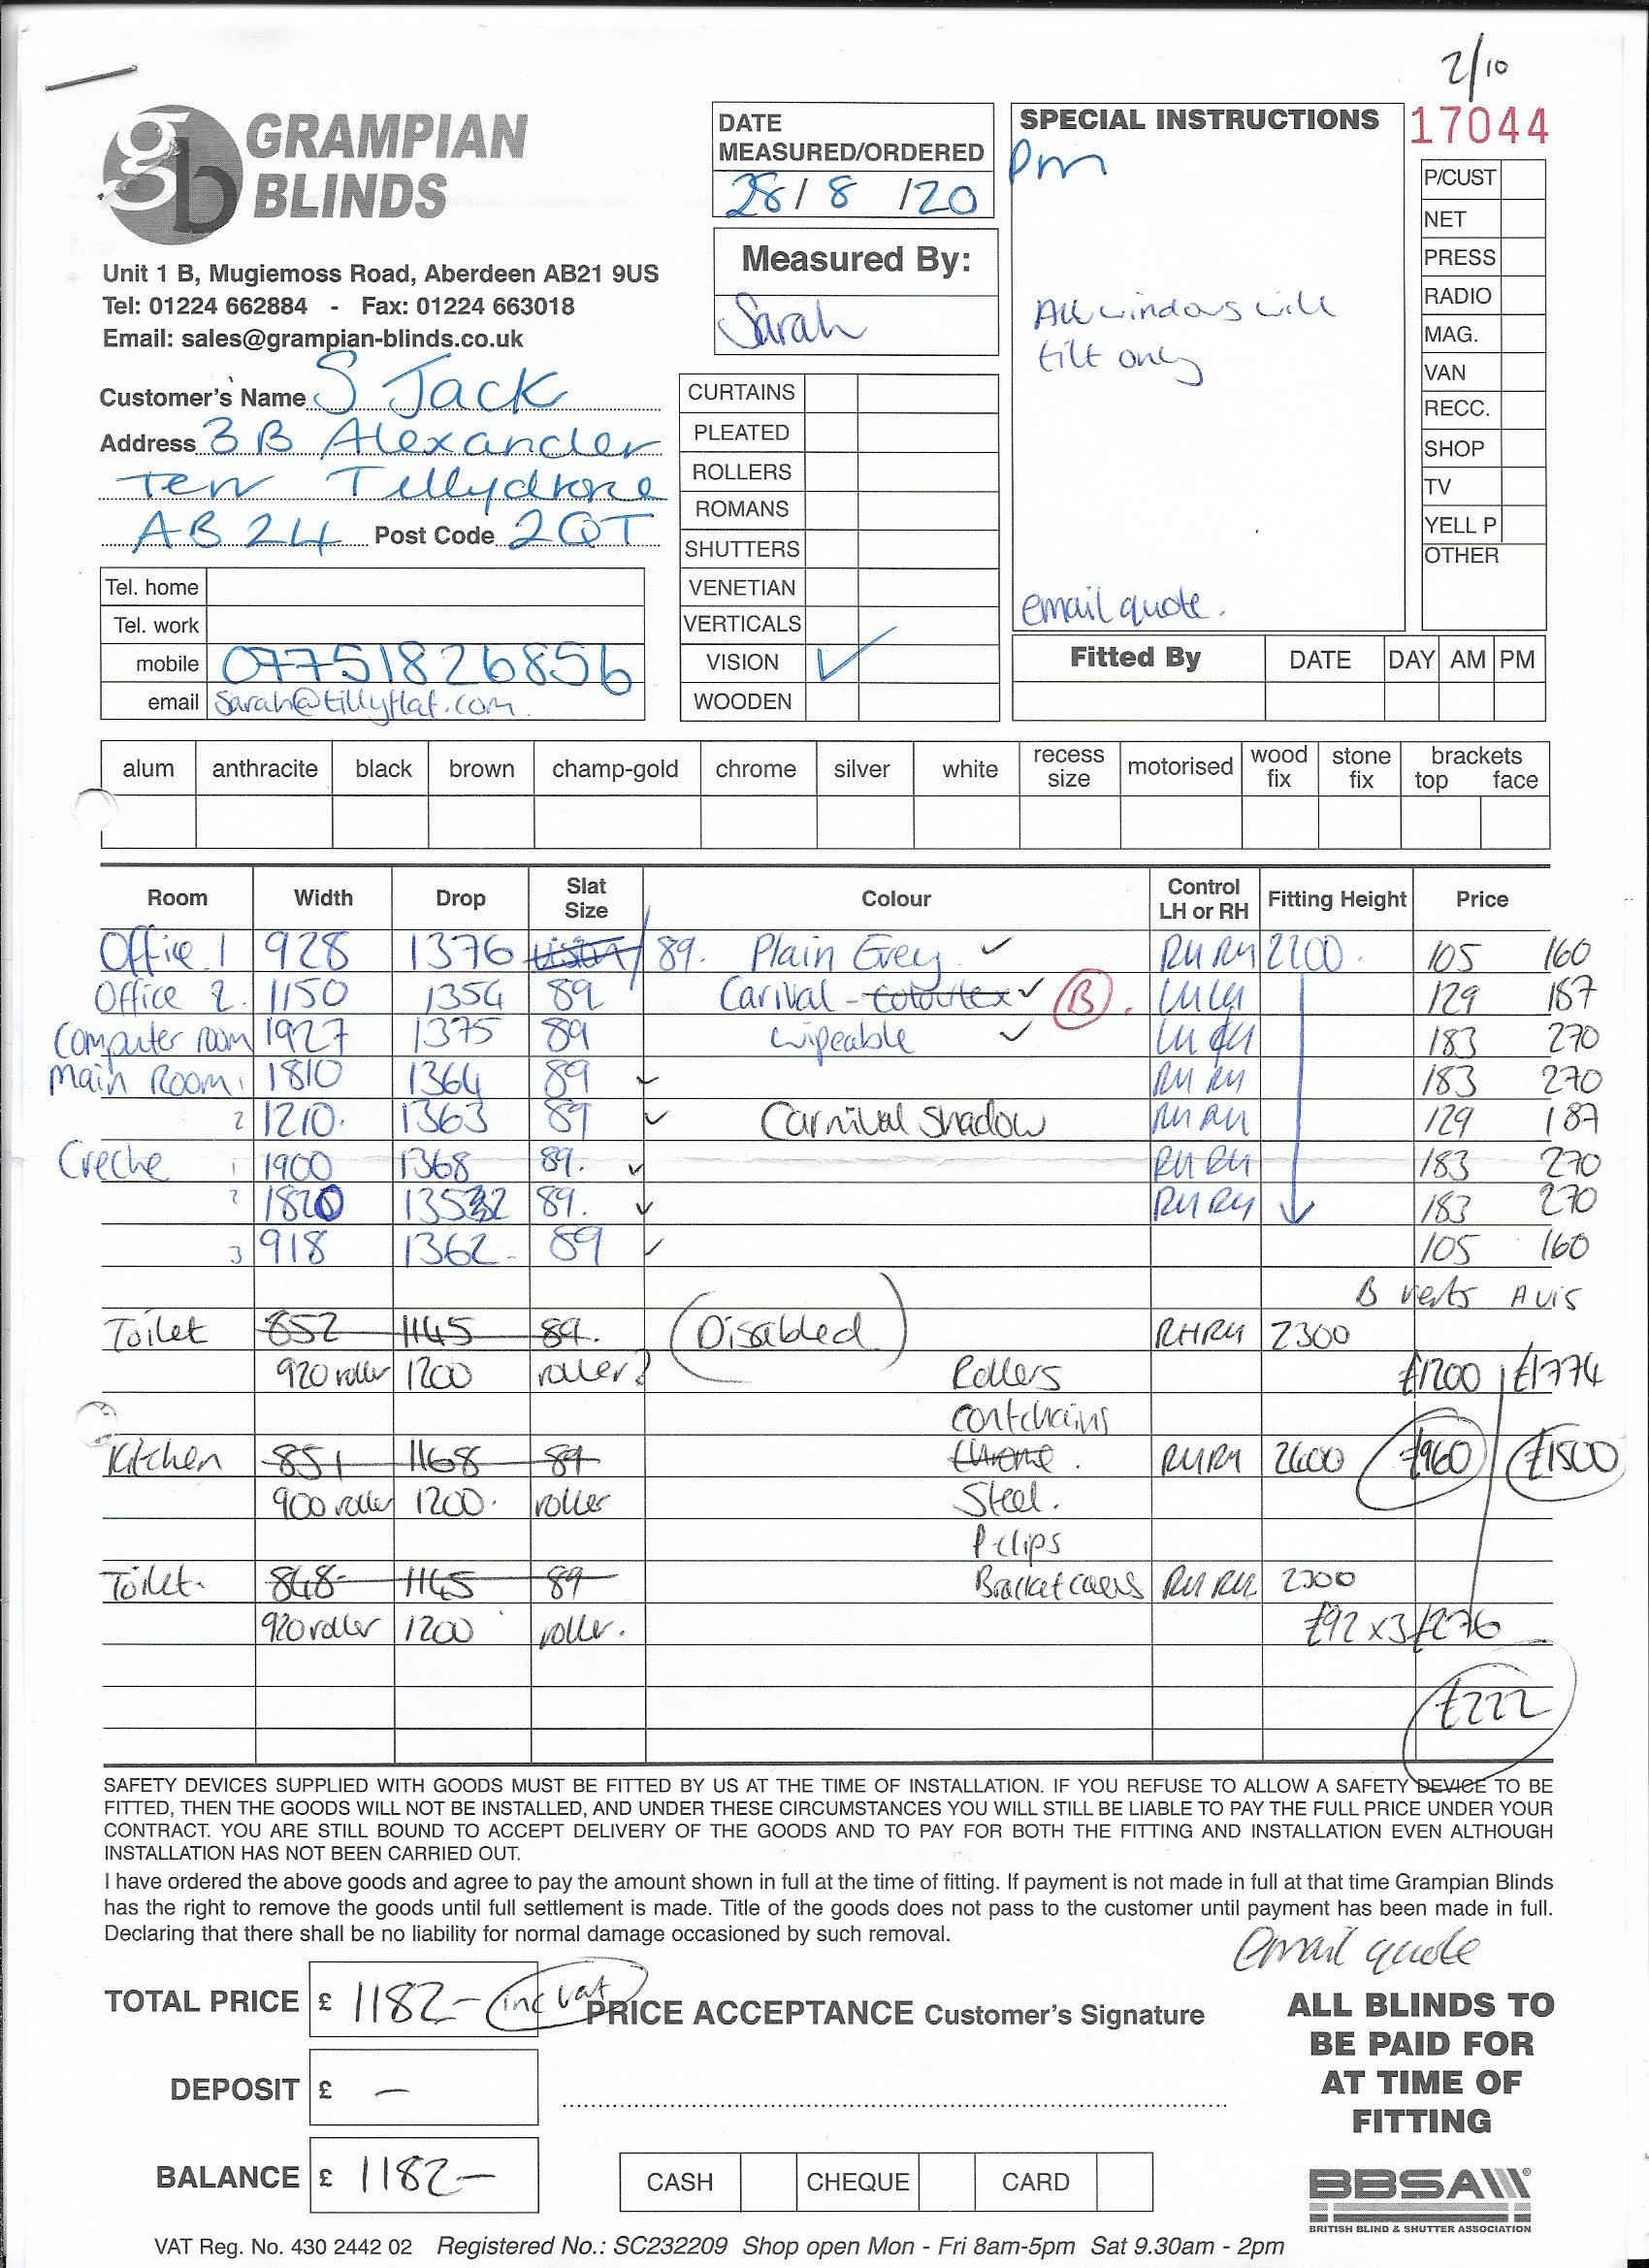 2/10
GRAMPIAN
BLINDS
Unit 1 B, Mugiemoss Road, Aberdeen AB21 9US
Tel: 01224 662884 - Fax: 01224 663018
Email: sales@grampian-blinds.co.uk
Customer's Name S Jack
Address 3B Alexander
Terr Tillydrone
AB24 Post Code 2QT
Tel. home
Tel. work
mobile 07751826856
email Sarah@tillyflat.com
DATE
MEASURED/ORDERED
28/8/20
Measured By:
Sarah
CURTAINS
PLEATED
ROLLERS
ROMANS
SHUTTERS
VENETIAN
VERTICALS
VISION ✓
WOODEN
SPECIAL INSTRUCTIONS
pm
All windows will
tilt only
email quote.
17044
P/CUST
NET
PRESS
RADIO
MAG.
VAN
RECC.
SHOP
TV
YELL P
OTHER
Fitted By DATE DAY AM PM
alum anthracite black brown champ-gold chrome silver white recess size motorised wood fix stone fix brackets top face
Room Width Drop Slat Size Colour Control LH or RH Fitting Height Price
Office 1 928 1376 89. Plain Grey ✓ RH RH 2200. 105 160
Office 2. 1150 1354 89 Carival - Colourtex ✓ B. LH LH 129 187
Computer room 1927 1375 89 wipeable ✓ LH LH 183 270
Main Room 1 1810 1364 89 ✓ RH RH 183 270
2 1210. 1363 89 ✓ Carnival Shadow RH RH 129 187
Creche 1 1900 1368 89. ✓ RH RH 183 270
2 1820 1352 89. ✓ RH RH 183 270
3 918 1362- 89 ✓ 105 160
B verts A vis
Toilet 852 1145 89. (Disabled) RH RH 2300
920 roller 1200 roller? Rollers £1200 £1774
cont chains
Kitchen 851 1168 89 Chrome. RH RH 2600 £960 £1500
900 roller 1200. roller Steel.
P-clips
Toilet. 848 1145 89 Bracket covers RH RH 2300
920 roller 1200 roller. £92 x3 £276
£222
SAFETY DEVICES SUPPLIED WITH GOODS MUST BE FITTED BY US AT THE TIME OF INSTALLATION. IF YOU REFUSE TO ALLOW A SAFETY DEVICE TO BE
FITTED, THEN THE GOODS WILL NOT BE INSTALLED, AND UNDER THESE CIRCUMSTANCES YOU WILL STILL BE LIABLE TO PAY THE FULL PRICE UNDER YOUR
CONTRACT. YOU ARE STILL BOUND TO ACCEPT DELIVERY OF THE GOODS AND TO PAY FOR BOTH THE FITTING AND INSTALLATION EVEN ALTHOUGH
INSTALLATION HAS NOT BEEN CARRIED OUT.
I have ordered the above goods and agree to pay the amount shown in full at the time of fitting. If payment is not made in full at that time Grampian Blinds
has the right to remove the goods until full settlement is made. Title of the goods does not pass to the customer until payment has been made in full.
Declaring that there shall be no liability for normal damage occasioned by such removal.
email quote
TOTAL PRICE £ 1182- inc vat
PRICE ACCEPTANCE Customer's Signature
DEPOSIT £ -
BALANCE £ 1182-
CASH CHEQUE CARD
ALL BLINDS TO
BE PAID FOR
AT TIME OF
FITTING
BBSA
BRITISH BLIND & SHUTTER ASSOCIATION
VAT Reg. No. 430 2442 02 Registered No.: SC232209 Shop open Mon - Fri 8am-5pm Sat 9.30am - 2pm